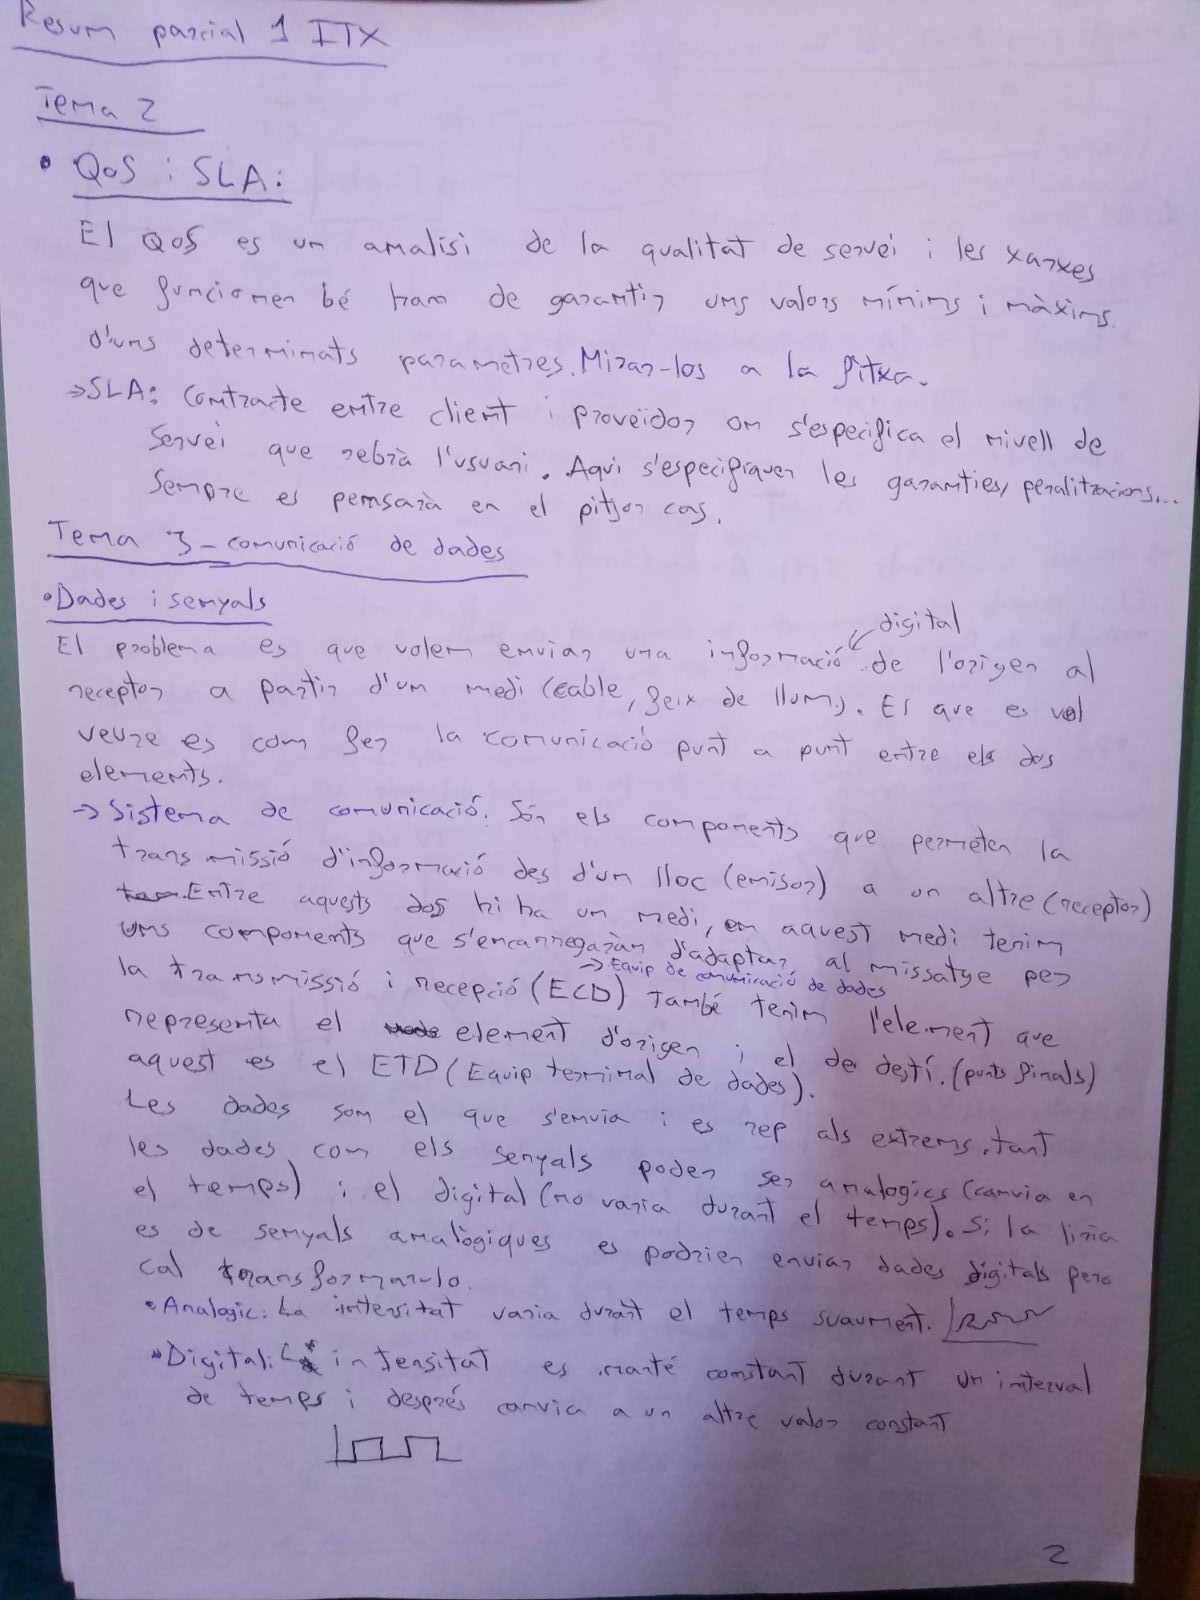 Resum parcial 1 ITX
Tema 2
• QoS i SLA:
El QoS es un analisi de la qualitat de servei i les xarxes
que funcionen bé han de garantir uns valors mínims i màxims.
d'uns determinats parametres. Mirar-los a la fitxa.
→SLA: Contracte entre client i proveïdor on s'especifica el nivell de
servei que rebrà l'usuari. Aqui s'especifiquen les garanties, penalitzacions...
Sempre es pensarà en el pitjor cas.
Tema 3 - comunicació de dades
• Dades i senyals
digital
El problema es que volem enviar una informació de l'origen al
receptor a partir d'un medi (cable, feix de llum). El que es vol
veure es com fer la comunicació punt a punt entre els dos
elements.
→ Sistema de comunicació. Són els components que permeten la
transmissió d'informació des d'un lloc (emisor) a un altre (receptor)
Entre aquests dos hi ha un medi, en aquest medi tenim
uns components que s'encarregaràn d'adaptar al missatge per
→ Equip de comunicació de dades
la transmissió i recepció (ECD) també tenim l'element que
representa el element d'origen i el de destí. (punts finals)
aquest es el ETD (Equip terminal de dades).
Les dades son el que s'envia i es rep als extrems. tant
les dades com els senyals poden ser analogics (canvia en
el temps) i el digital (no varia durant el temps). Si la linia
es de senyals analògiques es podrien enviar dades digitals pero
cal transformarlo.
• Analogic: La intensitat varia durant el temps suaument.
• Digital: La intensitat es manté constant durant un interval
de temps i després canvia a un altre valor constant
2